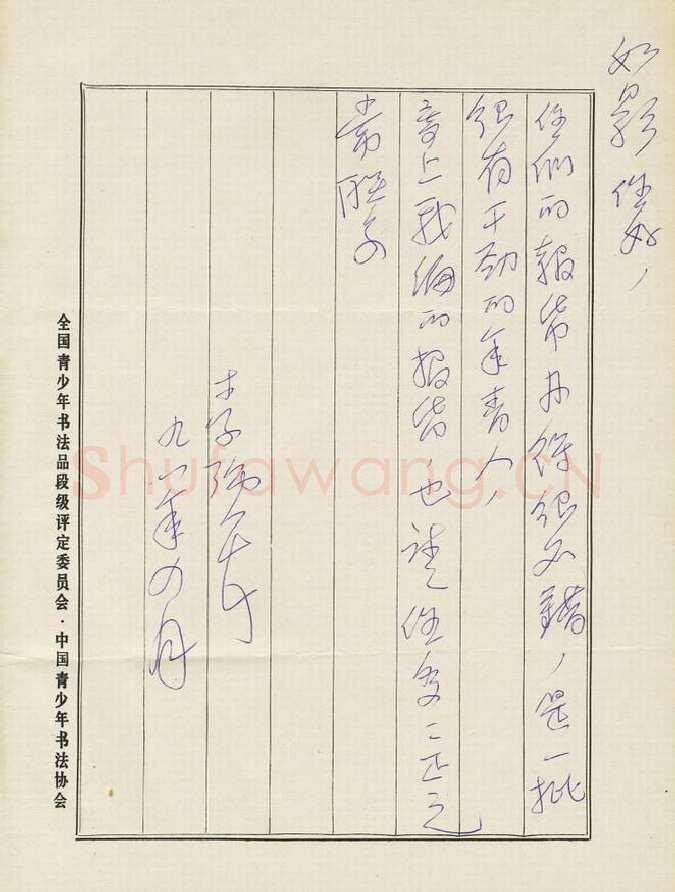 如影 你好，
你们的报纸办得很不错，是一批
很有干劲的年青人，
寄上我编的报纸，也请你多二正之
九一年四月
全国青少年书法品段级评定委员会·中国青少年书法协会
Shufawang.CN